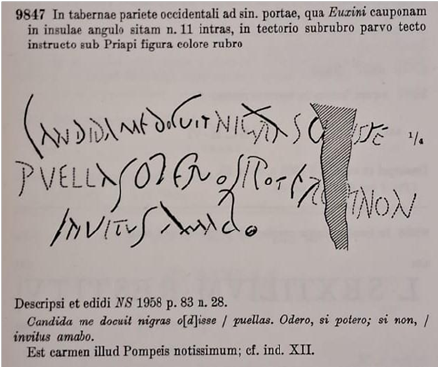 9847 In tabernae pariete occidentali ad sin. portae, qua Euxini cauponam
in insulae angulo sitam n. 11 intras, in tectorio subrubro parvo tecto
instructo sub Priapi figura colore rubro
CANDIDA ME DOCVIT NIGRAS O ISSE
PVELLAS ODERO SI POTERO NON
INVITVS AMABO
Descripsi et edidi NS 1958 p. 83 n. 28.
Candida me docuit nigras o[d]isse / puellas. Odero, si potero; si non, /
invitus amabo.
Est carmen illud Pompeis notissimum; cf. ind. XII.